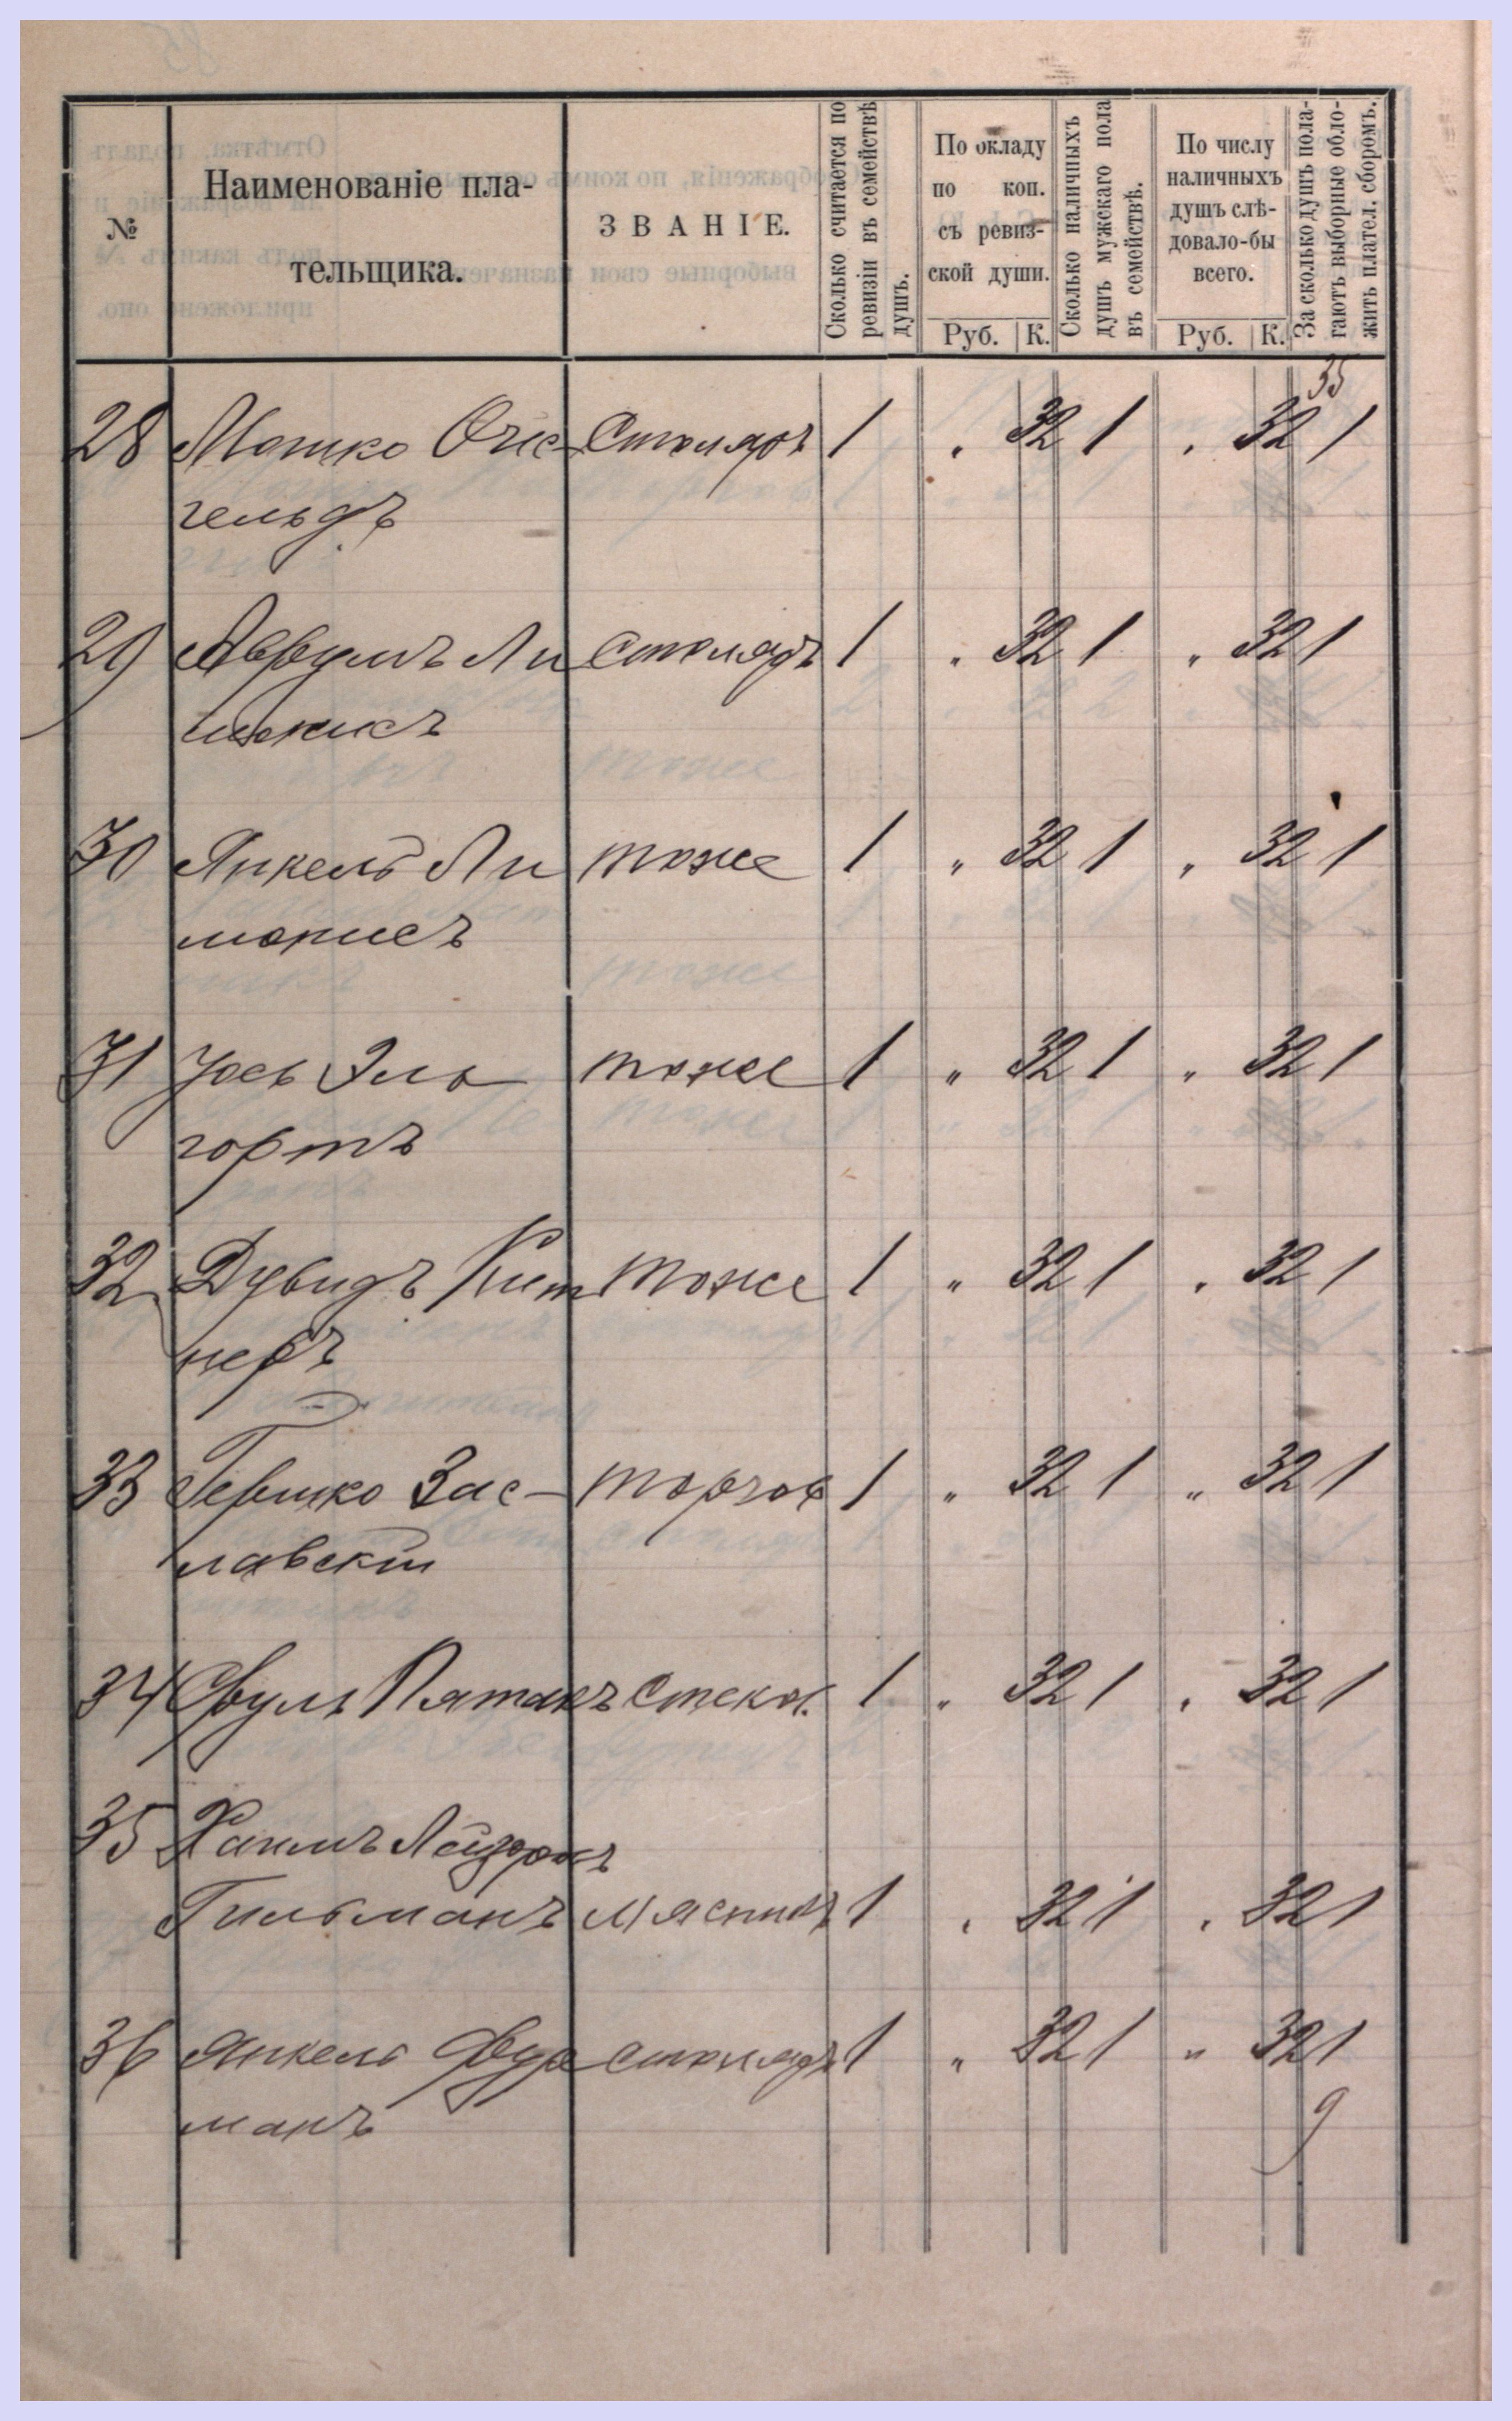 №
Наименованіе пла-
тельщика.
ЗВАНІЕ.
Сколько считается по
ревизіи въ семействѣ
душъ.
По окладу
по коп.
съ ревиз-
ской души.
Руб. К.
Сколько наличныхъ
душъ мужскаго пола
въ семействѣ.
По числу
наличныхъ
душъ слѣ-
довало-бы
всего.
Руб. К.
За сколько душъ пола-
гаютъ выборные обло-
жить плател. сборомъ.
35
28 Мошко столяръ 1 " 32 1 " 32 1
гельдъ
29 Аврумъ Ли столяръ 1 " 32 1 " 32 1
30 Янкель Ли тоже 1 " 32 1 " 32 1
31 Іось Эль тоже 1 " 32 1 " 32 1
гортъ
32 Дувидъ Кит тоже 1 " 32 1 " 32 1
неръ
33 Гершко Зас- торгов 1 " 32 1 " 32 1
лавскій
34 Сруль Пятакъ стекол. 1 " 32 1 " 32 1
35 Хаимъ
Гильманъ мясникъ 1 " 32 1 " 32 1
36 Янкель Фур столяръ 1 " 32 1 " 32 1
манъ
9